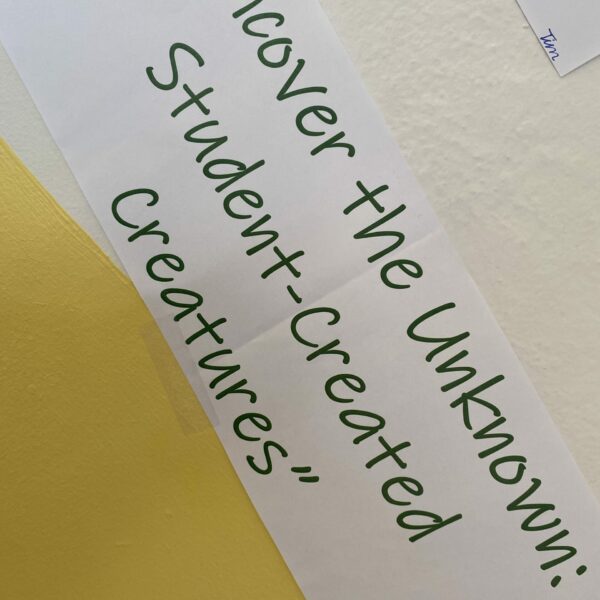 cover the Unknown:
Student-Created
Creatures"
Tim